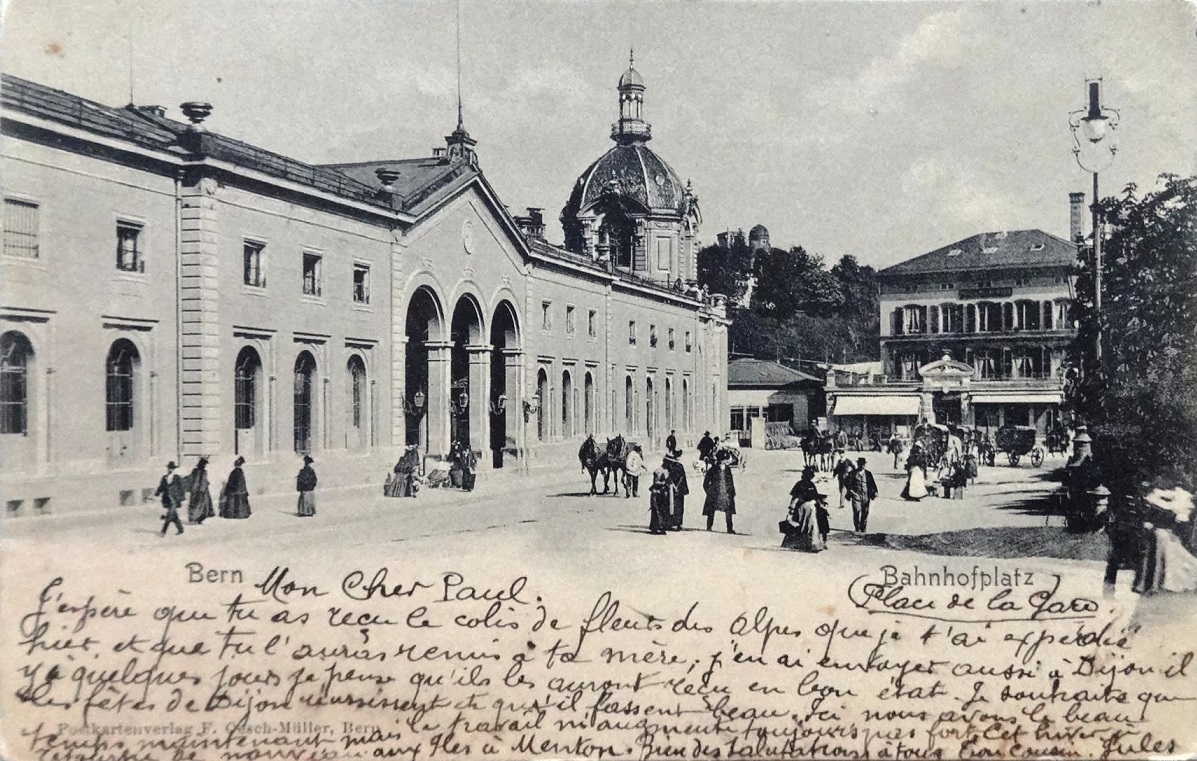 Bern
Mon Cher Paul.
Bahnhofplatz
(Place de la Gare)
J'espère que tu as reçu le colis de fleurs des Alpes que je t'ai expédié
hier, et que tu l'auras remis à ta mère, j'en ai envoyer aussi à Dijon il
ya quelques jours je pense qu'ils les auront reçu en bon état. Je souhaite que
les fêtes de Dijon réussissent et qu'il fassent beau. Ici nous avons le beau
Postkartenverlag F. Gesch-Müller, Bern
temps maintenant mais le travail n'augmente toujours pas fort. Cet hiver je
de nouveau aux Iles à Menton. Bien des salutations à tous ton cousin. Jules